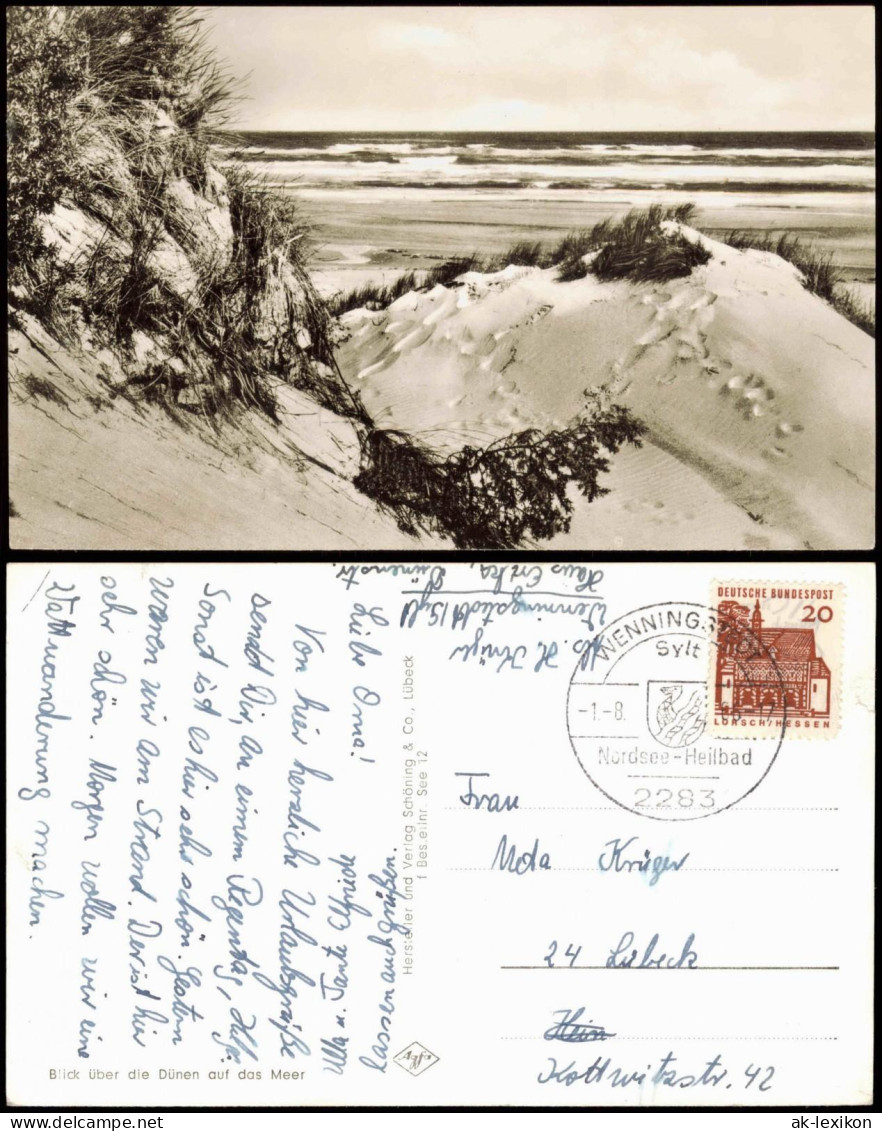 Abs. H. Krüger
Wenningstedt/Sylt
Haus Erika,
Dünenstr.
Liebe Oma!
Von hier herzliche Urlaubsgrüße
sendet Dir, an einem Regentag,
Sonst ist es hier sehr schön. Gestern
waren wir am Strand. Der ist hier
sehr schön. Morgen wollen wir eine
Wattwanderung machen.
Ulla u. Tante
lassen auch grüßen.
Hersteller und Verlag Schöning & Co., Lübeck
Bestellnr. See 12
Blick über die Dünen auf das Meer
DEUTSCHE BUNDESPOST
20
LORSCH/HESSEN
WENNINGSTEDT
Sylt
-1.-8.
Nordsee-Heilbad
2283
Frau
Krüger
24 Lübeck
Kottwitzstr. 42
ak-lexikon